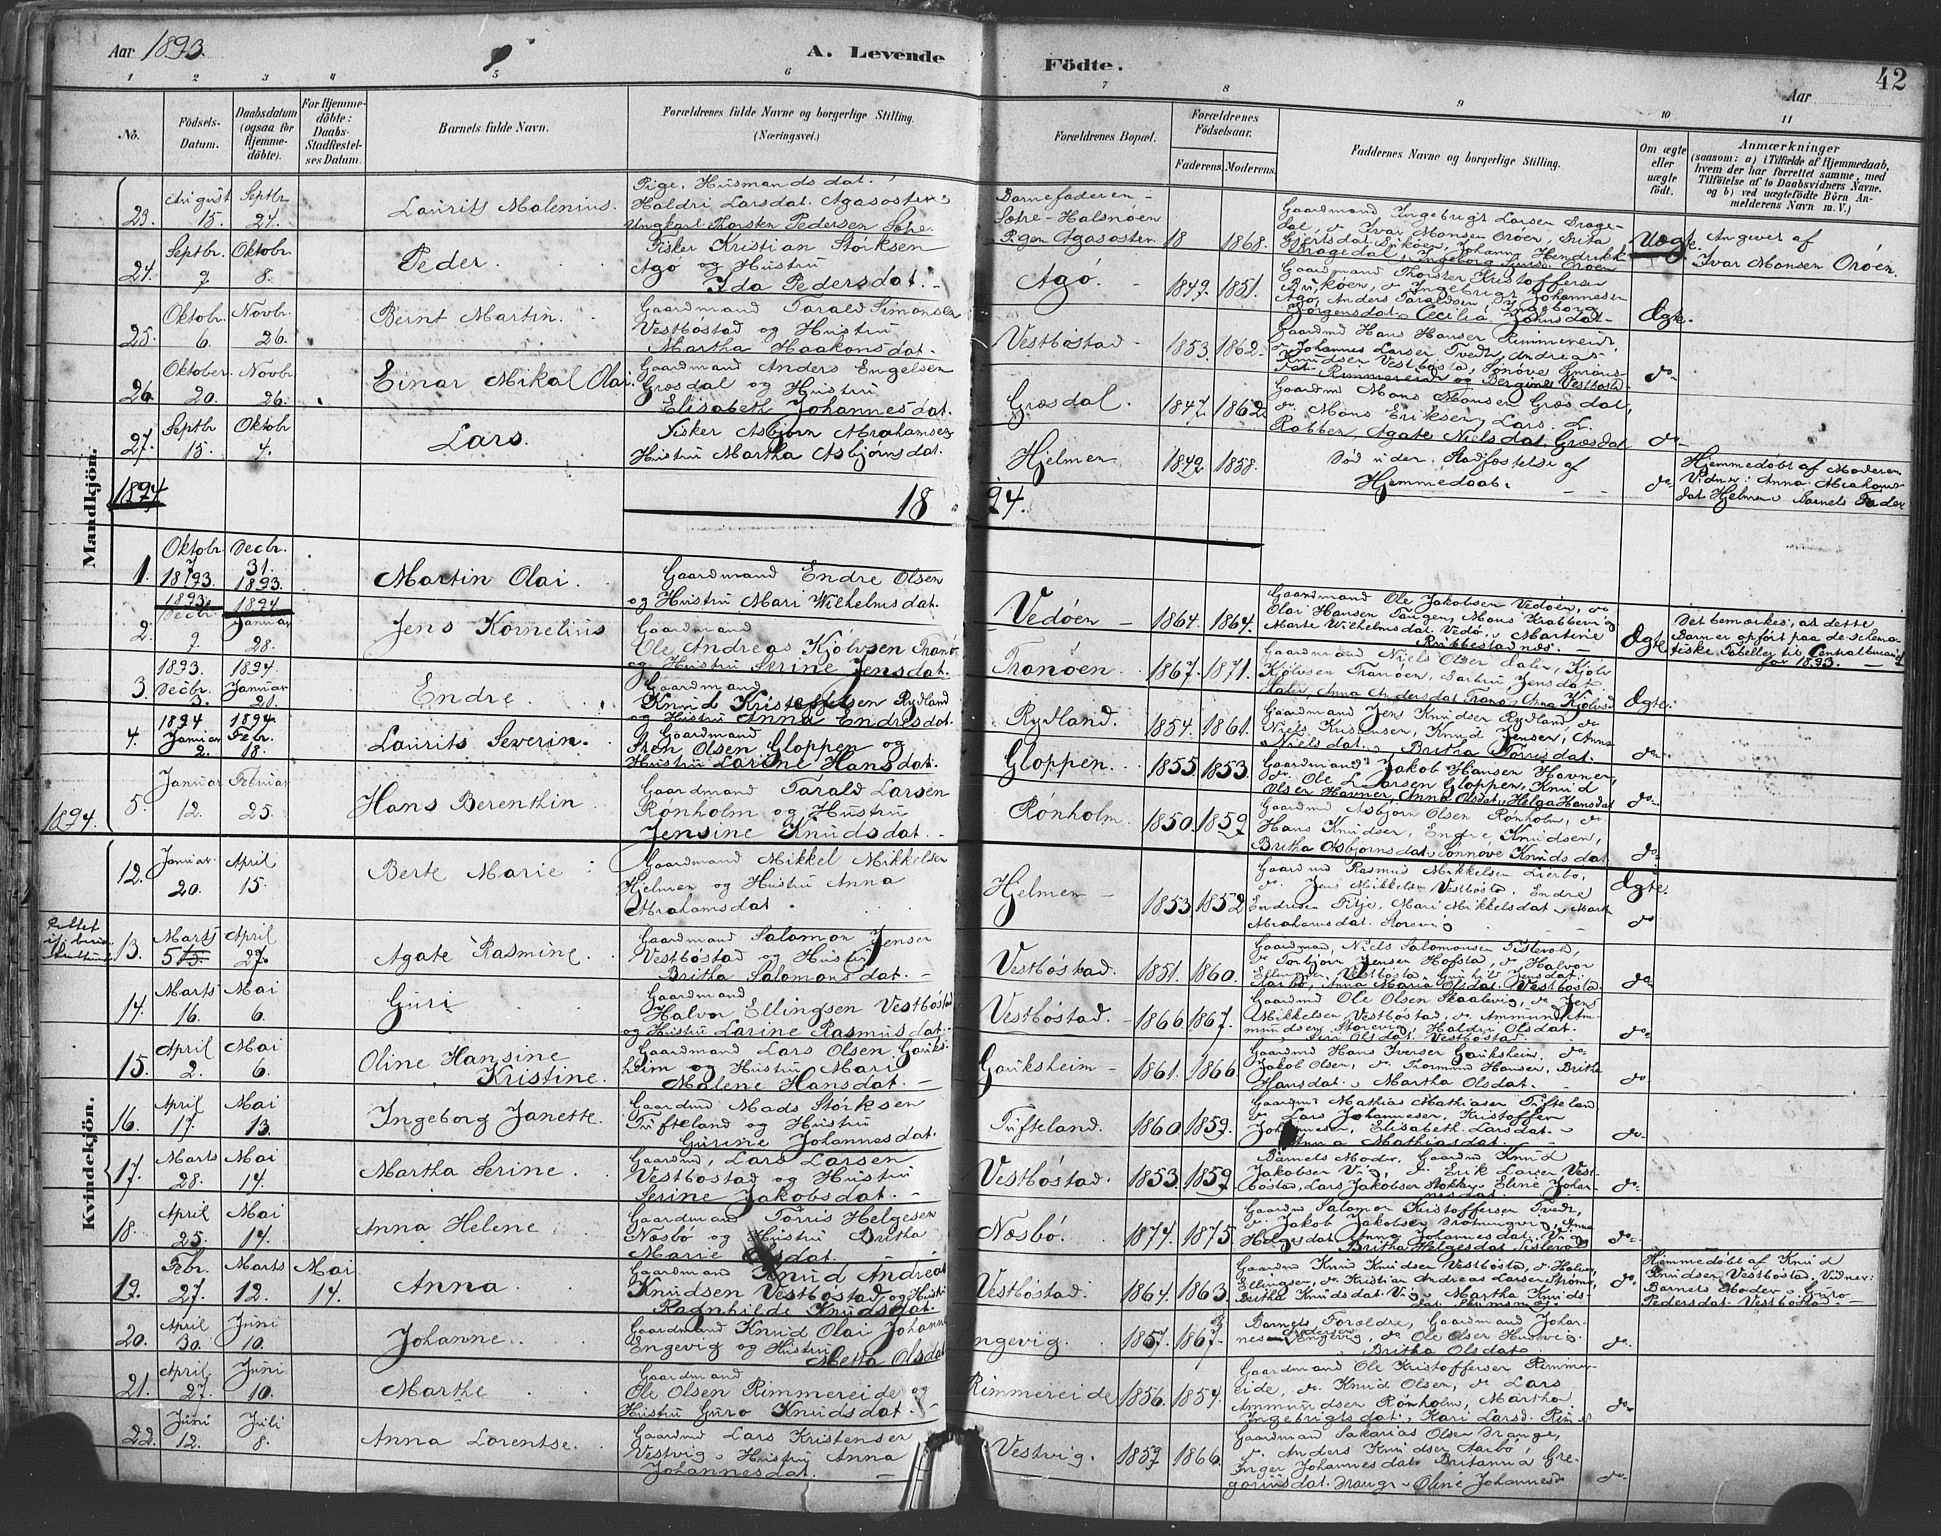 Aar 1893.
A. Levende Födte.
Aar
42
1 2 3 4 5 6 7 8 9 10 11
No.
Födsels-Datum.
Daabsdatum (ogsaa for Hjemme-döbte).
For Hjemme-döbte: Daabs-Stadfæstel-ses Datum.
Barnets fulde Navn.
Forældrenes fulde Navne og borgerlige Stilling. (Næringsvei.)
Forældrenes Bopæl.
Forældrenes Födselsaar.
Faderens. Moderens.
Faddernes Navne og borgerlige Stilling.
Om ægte eller uægte födt.
Anmærkninger
(saasom: a) i Tilfælde af Hjemmedaab, hvem der har forrettet samme, med Tilföielse af to Daabsvidners Navne, og b) ved uægtefödte Börn An-melderens Navn m. V.)
Mandkjön.
23. August 15. Septbr. 24. Laurits Malenius.
Pige, Husmandsdat.
Haldri Larsdat. Agasosten
Ungkarl Thorsten Pedersen Søre
Barnefaderen
Søre-Halsnøen
Pigen Agasosten. 18 1868.
Gaardmand Ingebrigt Larsen Drage-
dal, do Ivar Monsen Orøen, Brita
Uægte.
Angivet af
Ivar Monsen Orøen.
24. Septbr. 7. Oktobr. 8. Peder.
Fisker Kristian Størksen
Agø og Hustru
Ida Pedersdat.
Agø. 1849. 1851.
Gaardmand Thorsten Kristoffersen
Brikøen, do Ingebrigt Johannessen
Agø, Anders Taraldsen, Ingeborg
Børgensdat. Cecilia Johnsdat.
Ægte.
25. Oktobr. 6. Novbr. 26. Bernt Martin.
Gaardmand Tarald Simonsen
Vestbøstad og Hustru
Martha Haakonsdat.
Vestbøstad. 1853. 1862.
Gaardmd Hans Hansen Rimmereid,
do Johannes Larsen Tvedt, Andreas
Knudsen Vestbøstad, Sønøve Simons-
dat. Rimmereid og Bergine Vestbøstad
do
26. Oktober 20. Novbr. 26. Einar Mikal Olai.
Gaardmand Anders Engelsen
Græsdal og Hustru
Elisabeth Johannesdat.
Græsdal. 1847. 1862.
Gaardmd Mons Monsen Græsdal,
do Mons Eriksen, Lars L.
Robben, Agate Nielsdat. Græsdal
do
27. Septbr. 15. Oktobr. 4. Lars.
Fisker Asbjørn Abrahamsen
Hustru Martha Asbjørnsdat.
Hjelmen. 1842. 1858.
Død uden Stadfæstelse af
Hjemmedaab.
do
Hjemmedøbt af Moderen
Vidner: Anna Abrahams-
dat Hjelmen, Barnets Fader
1894.
1894.
1. Oktobr. 7. 1893. Decbr. 31. 1893. Martin Olai.
Gaardmand Endre Olsen
og Hustru Mari Wilhelmsdat.
Vedøen 1864. 1864.
Gaardmand Ole Jakobsen Vedøen, do
Olai Hansen Tangen, Mons Krabbevig
Marte Wilhelmsdat. Vedø, Martine
Ribbestadnæs.
Ægte
Det bemærkes, at dette
Barn er opført paa de schema-
tiske Tabeller til Centralbureauet
for 1893.
2. 1893. Decbr. 7. 1894. Januar 28. Jens Kornelius
Gaardmand
Ole Andreas Kjølvsen Tranø
og Hustru Serine Jensdat.
Tranøen. 1867. 1871.
Gaardmand Niels Olsen Dalen, Kjølv
Kjølvsen Tranøen,
Anna Andersdat Tranø, Anna Kjølvsd
Ægte.
3. 1893. Decbr. 3. 1894. Januar 21. Endre.
Gaardmand
Knud Kristoffelsen Rydland
og Hustru Anna Endresdat.
Rydland. 1854. 1861.
Gaardmand Jens Knudsen Rydland, do
Niels Kristensen, Knud Jensen, Anna
Nielsdat. Britha Tørrisdat.
do
4. 1894 Januar 2. 1894. Febr. 18. Laurits Severin.
Gaardmand
Sten Olsen Gloppen og
Hustru Larine Hansdat.
Gloppen. 1855. 1853.
Gaardmand Jakob Hansen Havnen,
do Ole L. Larsen Gloppen, Knud
Olsen Havnen, Anna Olsdat. Helga Hansdat
do
5. Januar 12. Februar 25. Hans Berenthin.
Gaardmand Tarald Larsen
Rønholm og Hustru
Jensine Knudsdat.
Rønholm. 1850. 1859
Gaardmd Asbjørn Olsen Rønholm, do
Hans Knudsen, Endre Knudsen,
Britha Asbjørnsdat. Sønnøve Knudsdat
do
1894.
Kvindekjön.
12. Januar. 20. April 15. Berte Marie
Gaardmand Mikkel Mikkelsen
Hjelmen og Hustru Anna
Abrahamsdat.
Hjelmen 1853. 1852
Gaardmd Rasmus Mikkelsen Lierbø,
do Jens Mikkelsen Vestbøstad, Endre
Endresen Titje, Mari Mikkelsdat. Marte
Abrahamsdat. Storevig
Ægte.
do
13. Marts 5. April 27. Agate Rasmine.
Gaardmand Salamon Jensen
Vestbøstad og Hustru
Britha Salomonsdat.
Vestbøstad. 1851. 1860.
Gaardmand, Niels Salomonsen Tislevold,
do Torbjørn Jensen Hofstad, do Halvor
Ellingsen, Vestbøstad, Gunhild Jensdat.
Anna Maria Olsdat. Vestbøstad.
do
14. Marts 16. Mai 6. Guri
Gaardmand
Halvor Ellingsen Vestbøstad
og Hustru Larine Rasmusdat.
Vestbøstad. 1866. 1867.
Gaardmd Ole Olsen Skaalevig, do Jens
Mikkelsen, Vestbøstad, do Ammund Am-
mundsen, Storevig, Haldri Olsdat.
Guri Olsdat. Vestbøstad.
do
15. April 2. Mai 6. Oline Hansine
Kristine.
Gaardmand Lars Olsen Gauks-
heim og Hustru Mari
Malene Hansdat.
Gauksheim 1861. 1866.
Gaardmd Hans Iversen Gauksheim, do
Jakob Olsen, do Thormund Hansen, Britha
Hansdat. Martha Olsdat.
do
16. April 17. Mai 13. Ingeborg Janette.
Gaardmd Mads Størksen
Tufteland og Hustru
Gurine Johannesdat.
Tufteland. 1860. 1859.
Gaardmd Mathias Mathiasen Tufteland
do Lars Johannesen, Kristoffen
Johannesen, Elisabeth Larsdat.
Anna Mathiasdat.
do
17. Marts 28. Mai 14. Martha Serine.
Gaardmd, Lars Larsen
Vestbøstad og Hustru
Serine Jakobsdat.
Vestbøstad. 1853. 1859
Barnets Moder, Gaardmd Knud
Jakobsen Vig, do Erik Larsen Vest-
bøstad, Lars Jakobsen Stokkey, Eline Johan-
nesdat.
do
18. April 25. Mai 14. Anna Helene.
Gaardmand Tørris Helgesen
Næsbø og Hustru Britha
Marie Olsdat.
Næsbø. 1874. 1875.
Gaardmd Salamon Kristoffersen Tvedt,
do Jakob Jakobsen Drotninguig, Anna
Helgesdat. Anna Johannesdat. Vig
Britha Helgesdat Tislevold
do
19. Febr. 27. Marts 12. Mai 14. Anna
Gaardmand Knud Andreas
Knudsen Vestbøstad og Hustru
Ragnhilde Knudsdat.
Vestbøstad. 1864. 1863.
Gaardmd Knud Knudsen Vestbøstad, do Halvor
Ellingsen, do Kristian Andreas Larsen
Britha Knudsdat. Vig, Martha Knuds-
do
Hjemmedøbt af Knud
Knudsen Vestbøstad. Vidner:
Barnets Moder, Guro
Pedersdat. Vestbøstad.
20. April 30. Juni 10. Johanne.
Gaardmand Knud Olai Johann
Engevig og Hustru
Metta Olsdat
Engevig. 1857. 1867.
Barnets Forældre, Gaardmand Johan-
nes Andersen Engevig, do Ole Olsen Husevig
Britha Olsdat.
do
21. April 27. Juni 10. Marthe
Gaardmand
Ole Olsen Rimmereide og
Hustru Guro Knudsdat.
Rimmereide 1856. 1854.
Gaardmand Ole Kristoffersen Rimmer-
eide, do Knud Olsen, do Lars
Ammundsen Rønholm, Martha
Ingebrigtsdat. Kari Larsd.
do
22. Juni 12. Juli 8. Anna Lorentse.
Gaardmd Lars Kristensen
Vestvig, Hustru Anna
Johannesdat.
Vestvig. 1859 1866.
Gaardmand Sakarias Olsen Drange,
do Anders Knudsen Aarbø,
Inger Johannesdat. Britanna Gre-
goriusdat. Drange, Oline Johannesd
do